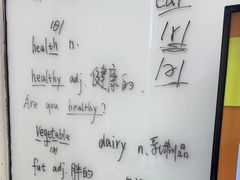 /θ/
health n.
/r/
healthy adj. 健康的.
/ə/
Are you healthy?
vegetable
dairy n. 乳制品
fat adj. 胖的